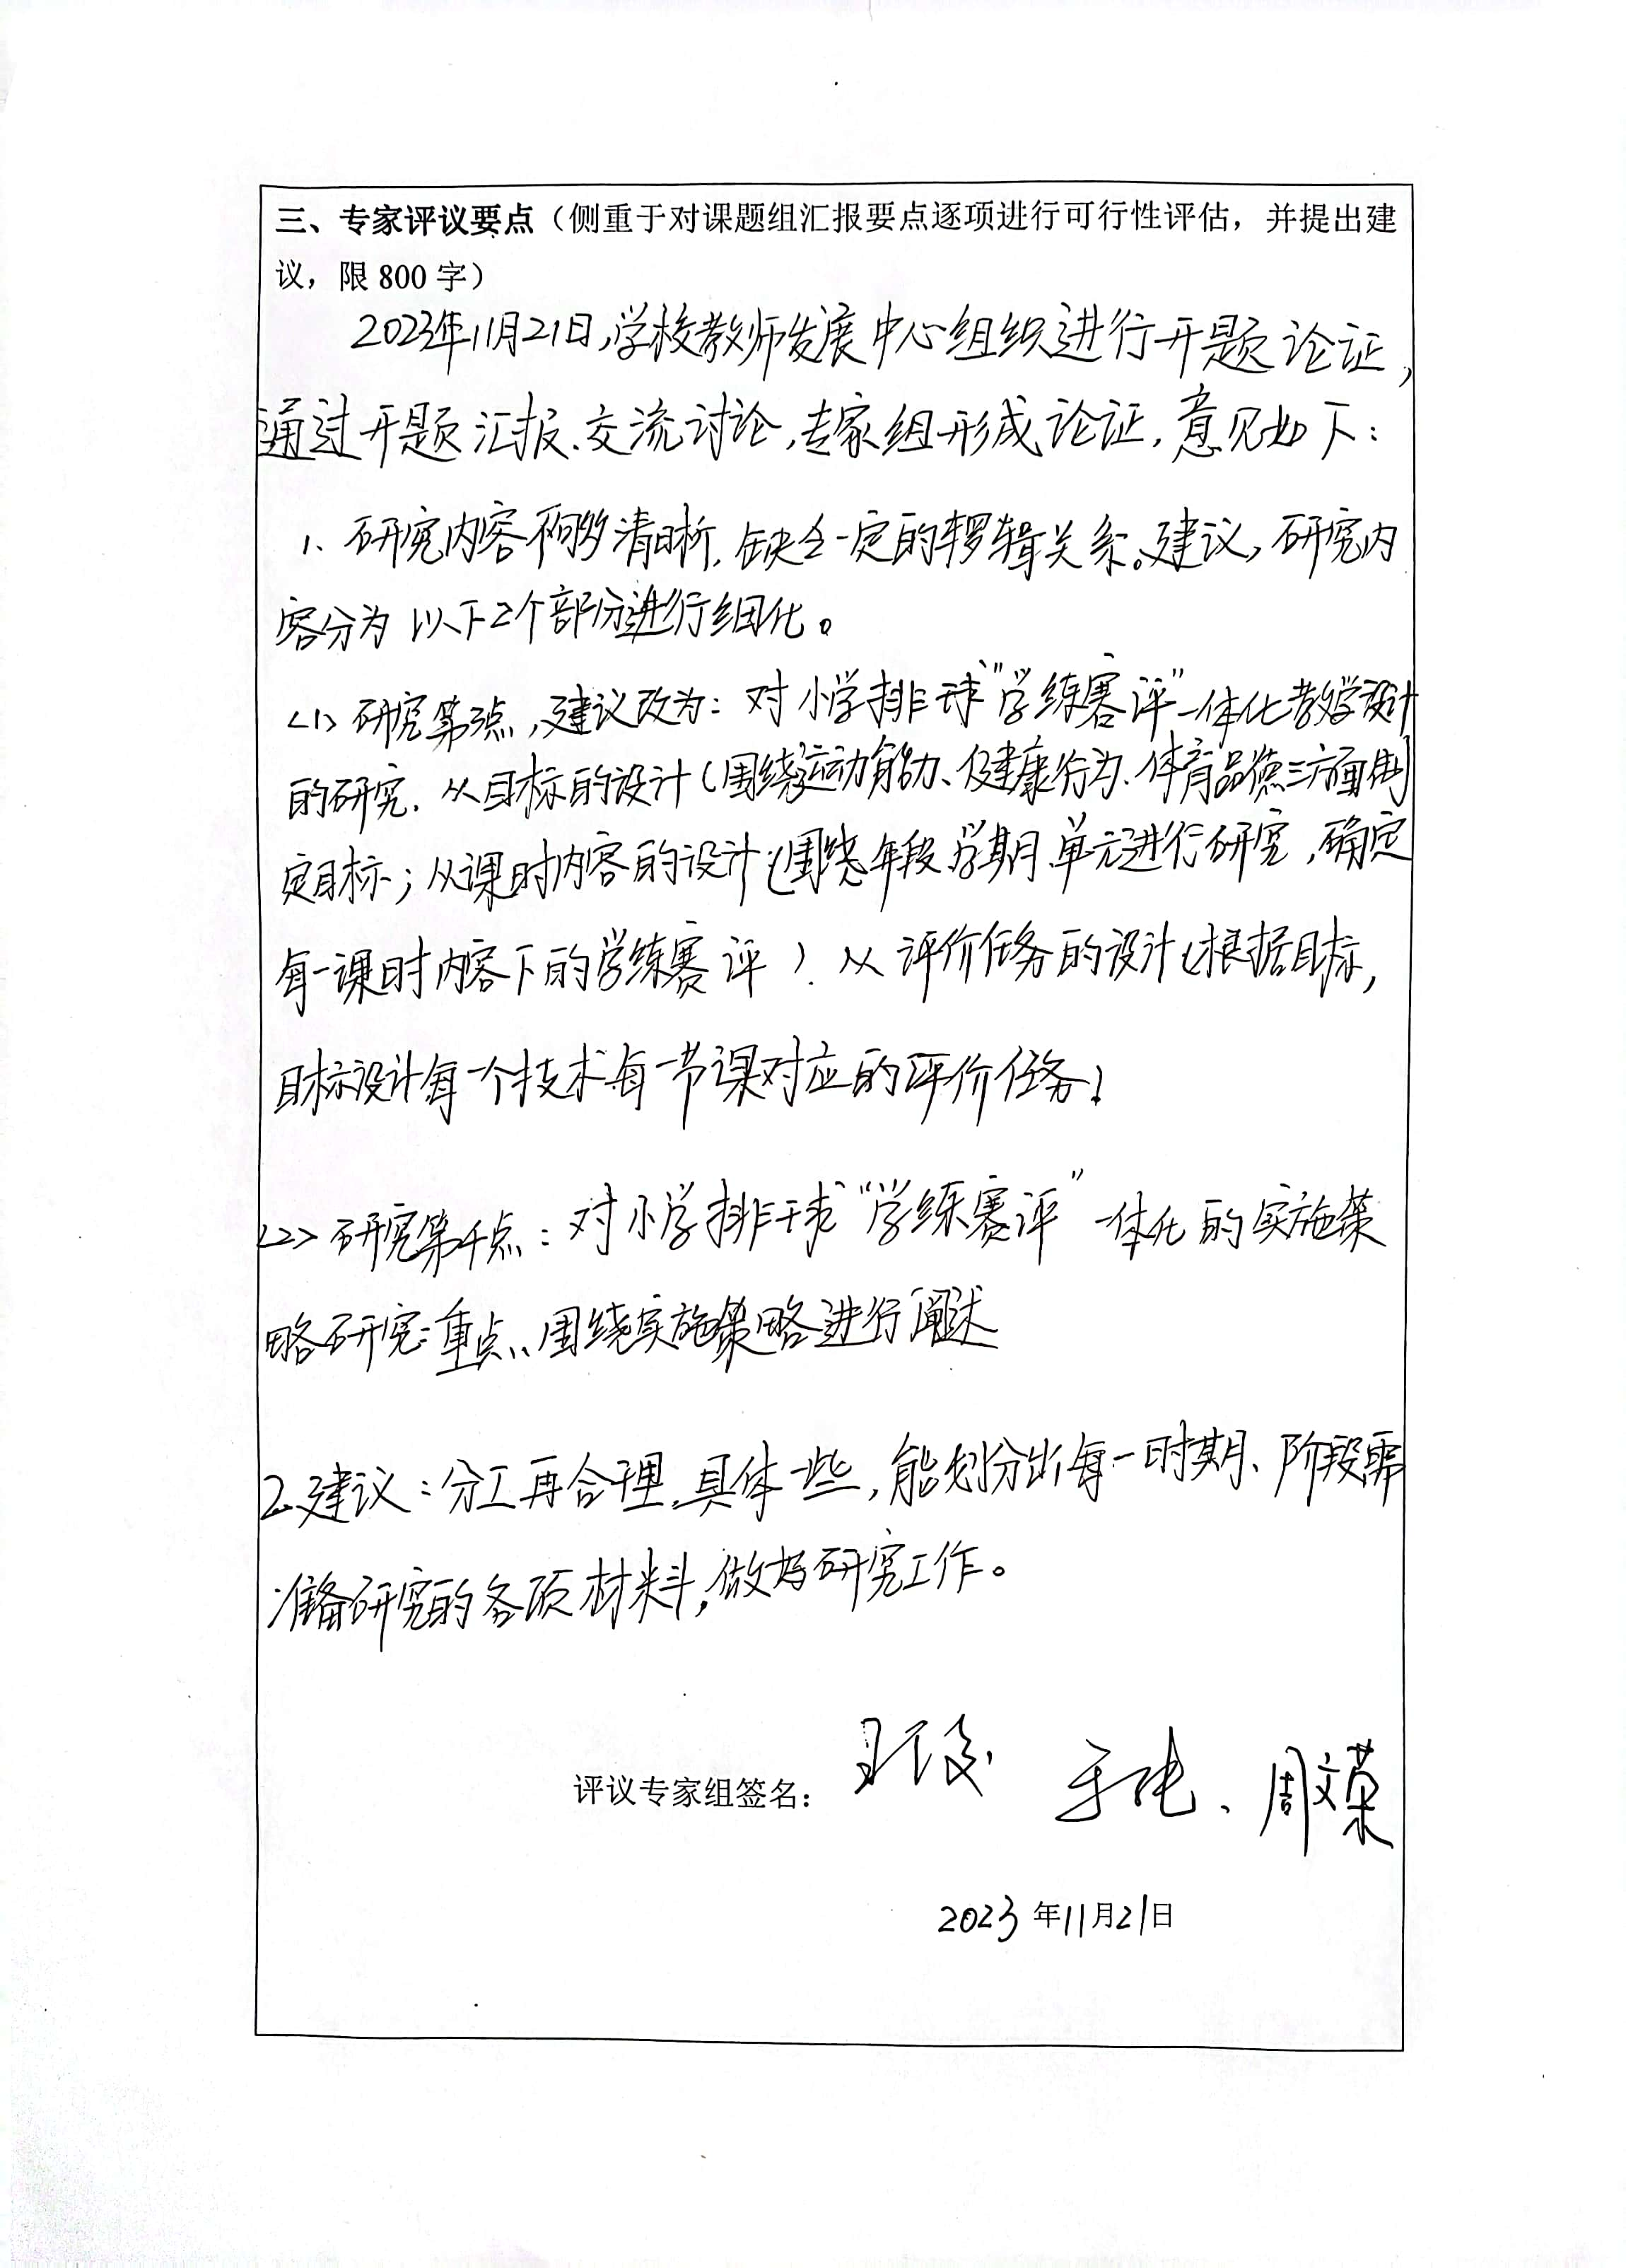 三、专家评议要点（侧重于对课题组汇报要点逐项进行可行性评估，并提出建
议，限 800 字）
2023年11月21日,学校教师发展中心组织进行开题论证,
通过开题汇报、交流讨论,专家组形成论证,意见如下:
1、研究内容不够清晰,缺乏一定的逻辑关系。建议,研究内
容分为以下2个部份进行细化。
<1>研究第3点,建议改为:对小学排球“学练赛评”一体化教学设计
的研究.从目标的设计(围绕运动能力、健康行为、体育品德三方面制
定目标;从课时内容的设计(围绕年段学期单元进行研究,确定
每一课时内容下的学练赛评)从评价任务的设计(根据目标,
目标设计每一个技术每一节课对应的评价任务)
<2>研究第4点:对小学排球“学练赛评”一体化的实施策
略研究:重点、围绕实施策略进行阐述
2.建议:分工再合理,具体一些,能划分出每一时期、阶段需
准备研究的各项材料,做好研究工作。
评议专家组签名：
周文荣
2023年11月21日